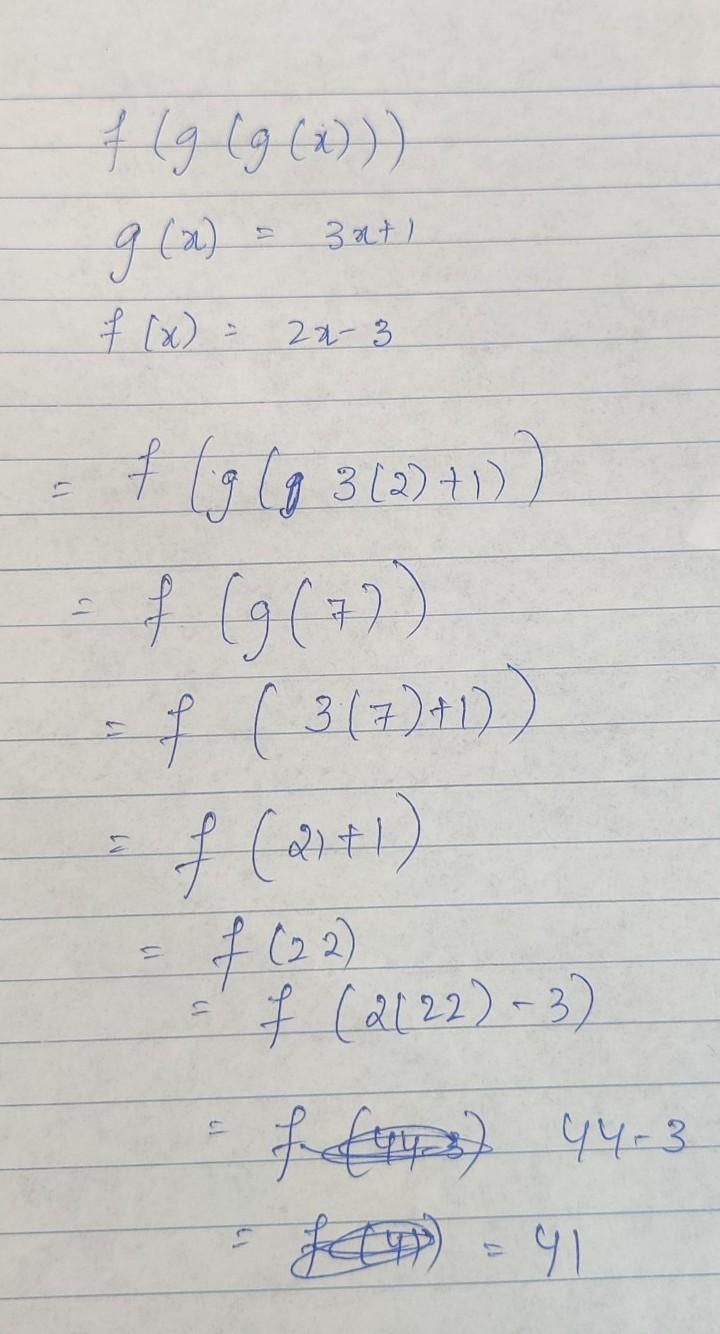 f (g (g (x)))
g (x) = 3x+1
f (x) = 2x-3
= f (g (g 3(2)+1))
= f (g(7))
= f ( 3(7)+1))
= f (21+1)
= f (22)
= f (2(22)-3)
= f (44-3) 44-3
= f (41) = 41